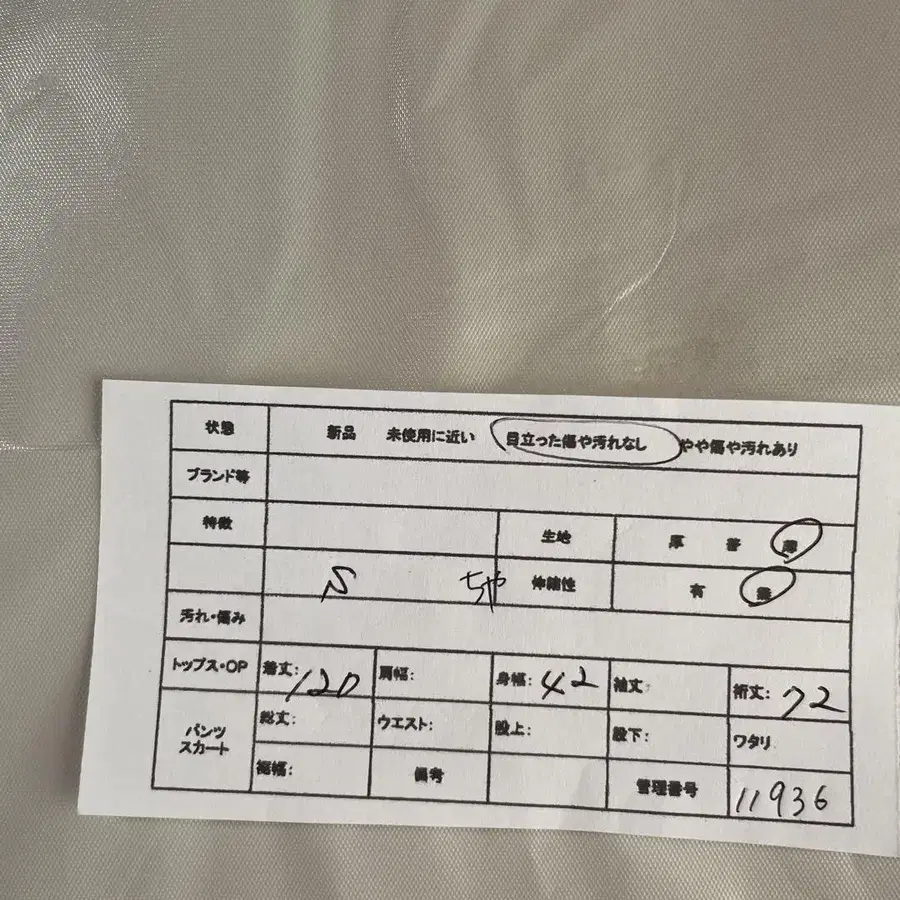 状態 新品 未使用に近い 目立った傷や汚れなし やや傷や汚れあり
ブランド等
特徴 生地 厚 普 薄
S ちゃ 伸縮性 有 無
汚れ・傷み
トップス・OP 着丈: 120 肩幅: 身幅: 42 袖丈: 裄丈: 72
パンツ スカート 総丈: ウエスト: 股上: 股下: ワタリ
裾幅: 備考 管理番号 11936